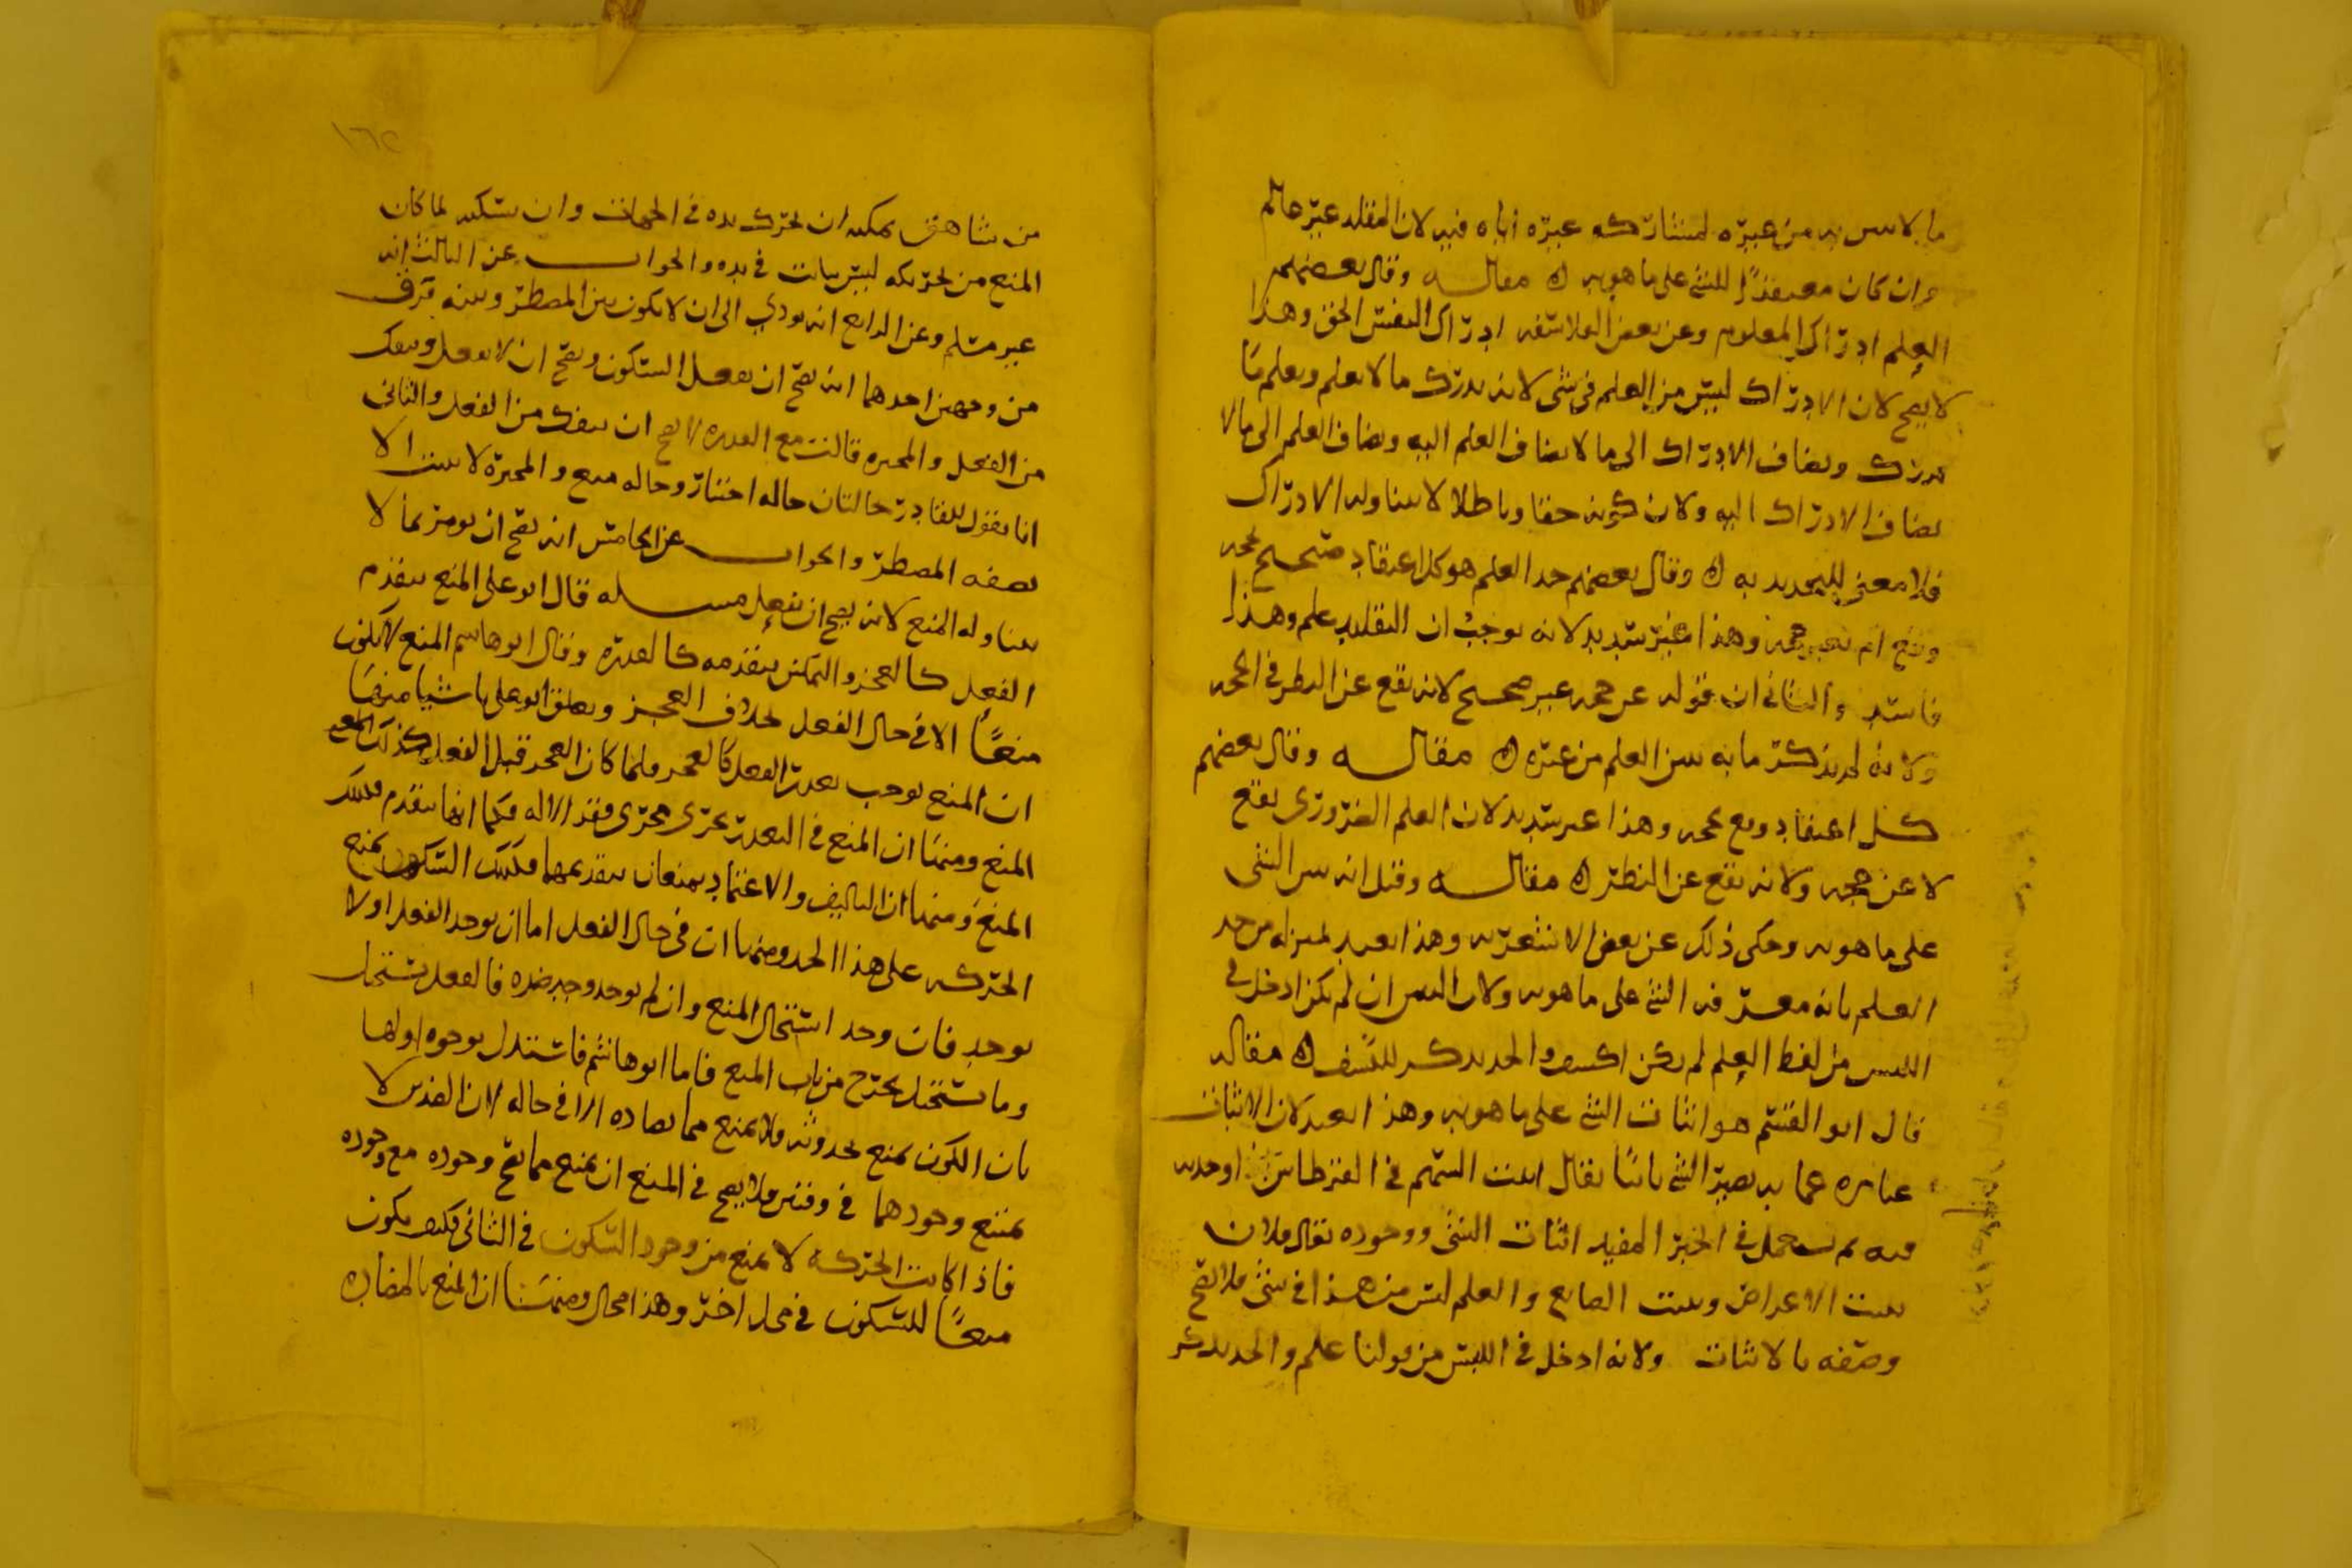 ما لا يبين به من غيره لمشاركة غيره اياه فيه لان المقلد غير عالم
وان كان معتقدًا للشي على ما هو به ه مقالـــه وقال بعضهم
العلم ادراك المعلوم وعن بعض الفلاسفه ادراك النفس الحق وهذا
لا يصح لان الادراك ليس من العلم في شي لانه يدرك ما لا يعلم ويعلم ما
يدرك ويضاف الادراك الى ما لا يضاف العلم اليه ويضاف العلم الى ما لا
يضاف الادراك اليه ولان كونه حقا وباطلا لا يتناوله الادراك
فلا معنى للتحديد به ه وقال بعضهم حد العلم هو كل اعتقاد صحيح لحجه
وقع ام بغير حجه وهذا غير سديد لانه يوجب ان التقليد علم وهذا
فاسد والثاني ان قوله عن حجه غير صحيح لانه يقع عن النظر في الحجه
ولانه لم يذكر ما به يبين العلم من غيره ه مقالـــه وقال بعضهم
كل اعتقاد وقع عن حجه وهذا غير سديد لان العلم الضروري يقع
لا عن حجه ولانه يقع عن النظر ه مقالـــه وقيل انه تبين الشي
على ما هو به وحكى ذلك عن بعض الاشعريه وهذا ابعد لمنزله من حد
العلم بانه معرفه الشي على ما هو به ولان التبين ان لم يكن ادخل في
اللبس من لفظ العلم لم يكن اكشف والحد يذكر للكشف ه مقاله
قال ابو القسم هو اثبات الشي على ما هو به وهذا ابعد لان الاثبات
عباره عما به يصير الشي ثابتًا يقال اثبت السهم في القرطاس اوجده
فيه ثم يستعمل في الخبر المفيد اثبات الشي ووجوده يقال فلان
يثبت الاعراض ويثبت الصانع والعلم ليس من هذا في شي فلا يصح
وصفه بالاثبات ولانه ادخل في اللبس من قولنا علم والحد يذكر
١٦٢
من شاهق يمكنه ان يحرك يده في الجهات وان يسكنه لما كان
المنع من تحريكه ليس بثابت في يده والجوابــــ عن الثالث انه
غير مسلم وعن الرابع انه يودي الى ان لا يكون بين المضطر وبينه فرق
من وجهين احدهما انه يصح ان يفعل السكون ويصح ان لا يفعل وينفك
من الفعل والمجبره قالت مع القدره لا يصح ان ينفك من الفعل والثاني
انا نقول للقادر حالتان حاله اختيار وحاله منع والمجبرة لا يثبت الا
بصفه المضطر والجوابـــ عن الخامس انه يصح ان يومر بما لا
يتناوله المنع لانه يصح ان يفعل مسـله قال ابو علي المنع يتقدم
الفعل كالعجز والتمكين يتقدمه كالقدره وقال ابو هاشم المنع لا يكون
منعًا الا في حال الفعل بخلاف العجز وتعلق ابو علي باشيا منها
ان المنع يوجب تعذر الفعل كالعجز فلما كان العجز قبل الفعل كذلك المنع
المنع ومنها ان المنع في التعذر يجري مجرى فقد الاله فكما انها يتقدم فكذلك
المنع ومنها ان التاليف والاعتماد يمنعان بتقدمهما فكذلك السكون يمنع
الحركه على هذا الحد ومنها ان في حال الفعل اما ان يوجد الفعل اولا
يوجد فان وجد استحال المنع وان لم يوجد وجد ضده فالفعل يستحيل
وما يستحيل يخرج من باب المنع فاما ابو هاشم فاستدل بوجوه اولها
بان الكون يمنع بحدوثه فلا يمنع مما يضاده الا في حاله لان الضدين لا
يمتنع وجودهما في وقتين فلا يصح في المنع ان يمنع مما يصح وجوده مع وجوده
فاذا كانت الحركه لا تمنع من وجود السكون في الثاني فكيف يكون
منعًا للسكون في محل اخر وهذا محال ومنها ان المنع بالمضاده